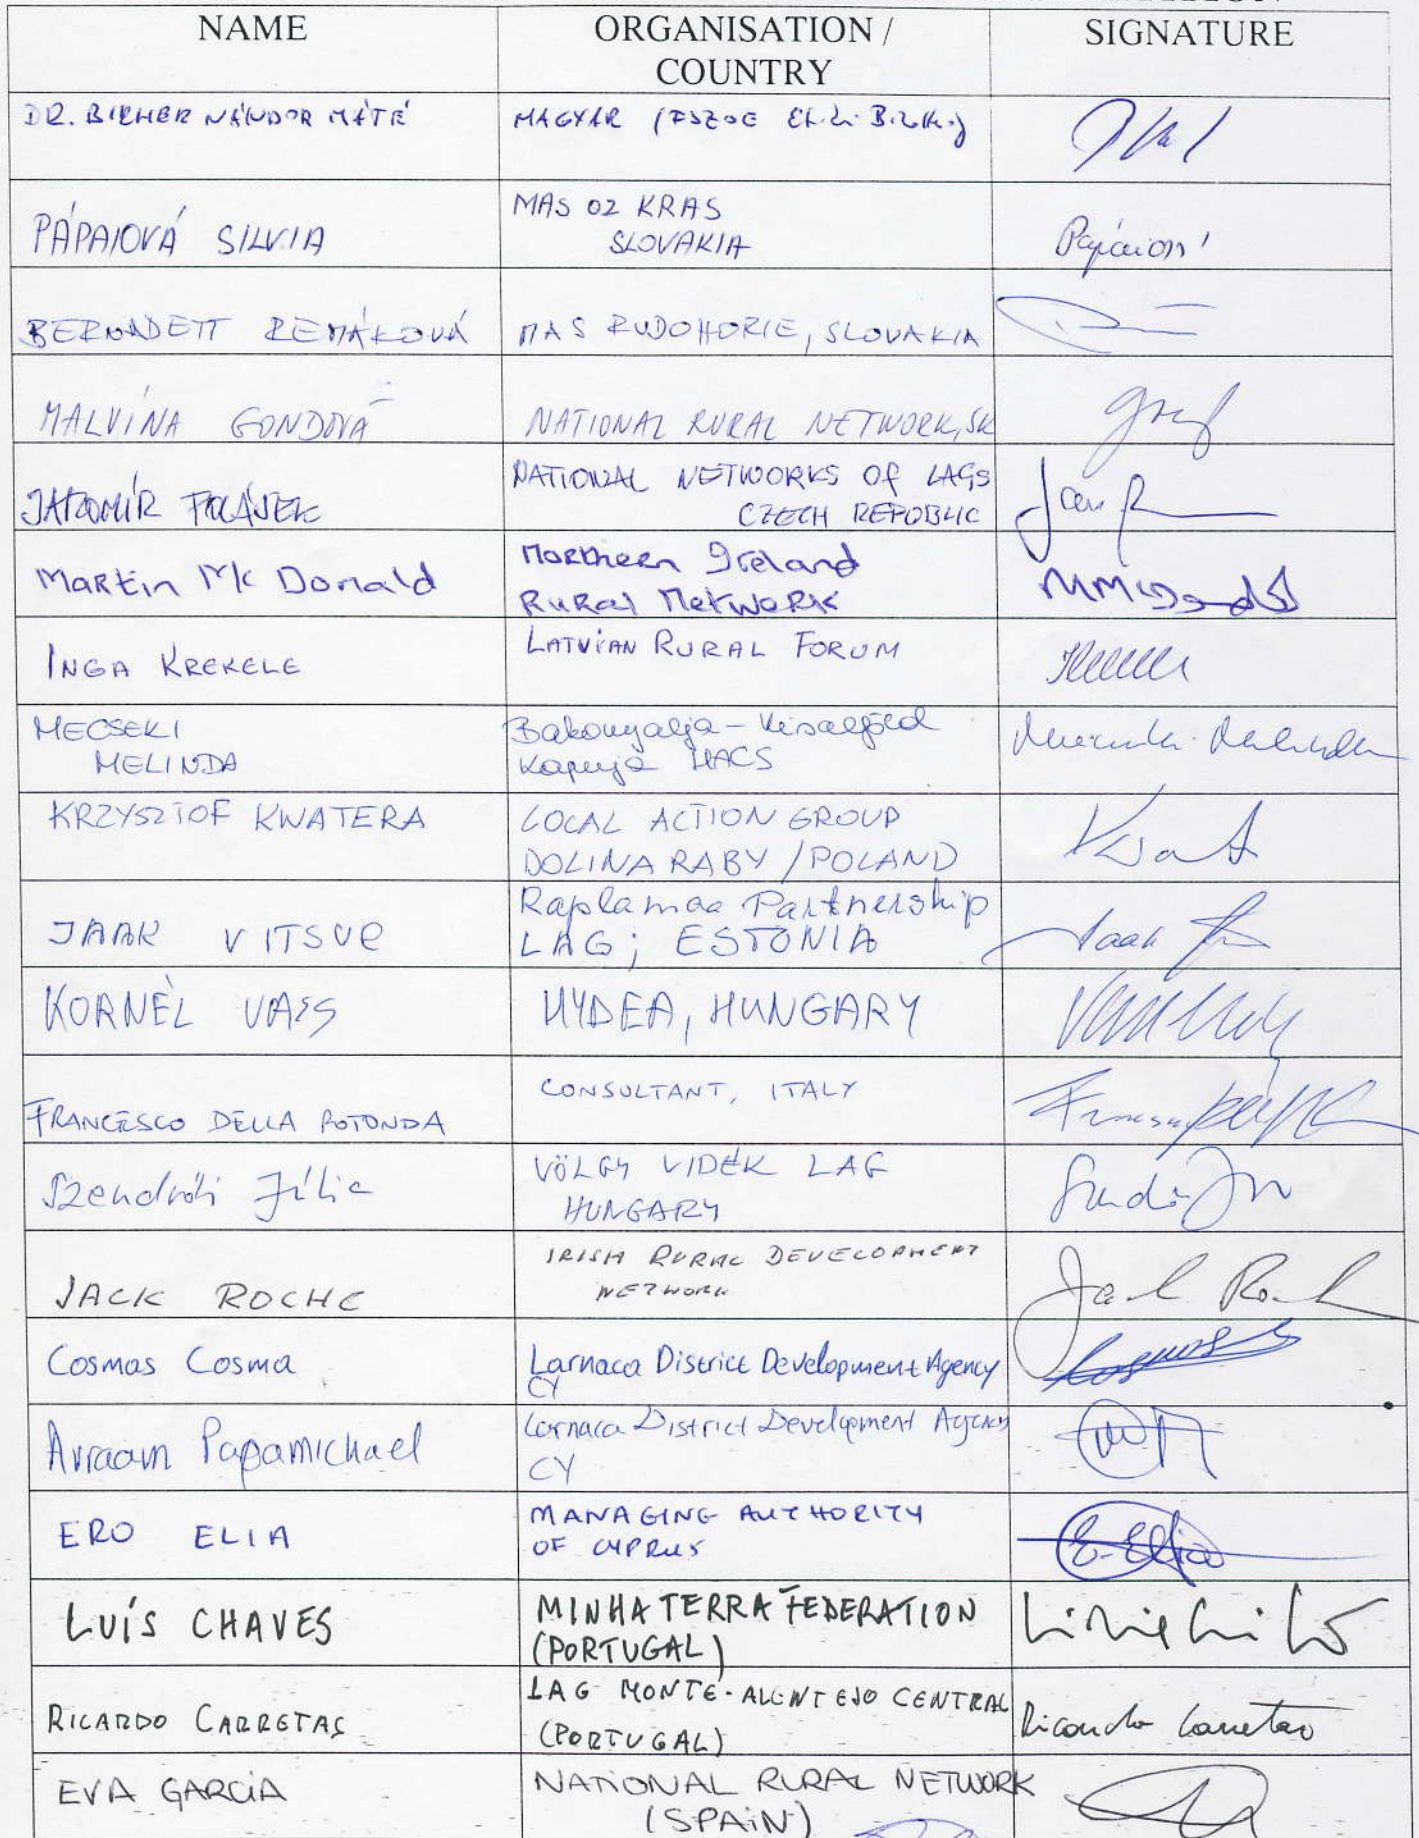 NAME ORGANISATION / SIGNATURE
COUNTRY
DR. BIRHER NÁNDOR MÁTÉ MAGYAR
PÁPAIOVÁ SILVIA MAS OZ KRAS
SLOVAKIA
BERNADETT REMÁKOVÁ MAS RUDOHORIE, SLOVAKIA
MALVÍNA GONDOVÁ NATIONAL RURAL NETWORK, SK
JAROMÍR POLÁŠEK NATIONAL NETWORKS OF LAGS
CZECH REPUBLIC
Martin Mc Donald Northern Ireland
Rural Network
INGA KREKELE LATVIAN RURAL FORUM
MECSEKI Bakonyalja - Kisalföld
MELINDA Kapuja HACS
KRZYSZTOF KWATERA LOCAL ACTION GROUP
DOLINA RABY / POLAND
JAAK VITSUR Raplamaa Partnership
LAG; ESTONIA
KORNÉL VASS HYDEA, HUNGARY
FRANCESCO DELLA ROTONDA CONSULTANT, ITALY
Szendrői Júlia VÖLGY VIDÉK LAG
HUNGARY
JACK ROCHE IRISH RURAL DEVELOPMENT
NETWORK
Jack Roch
Cosmas Cosma Larnaca District Development Agency
CY
Avraam Papamichael Larnaca District Development Agency
CY
ERO ELIA MANAGING AUTHORITY
OF CYPRUS
E. Elia
LUÍS CHAVES MINHA TERRA FEDERATION
(PORTUGAL)
RICARDO CARRETAS LAG MONTE-ALENTEJO CENTRAL
(PORTUGAL)
Ricardo Carretas
EVA GARCÍA NATIONAL RURAL NETWORK
(SPAIN)